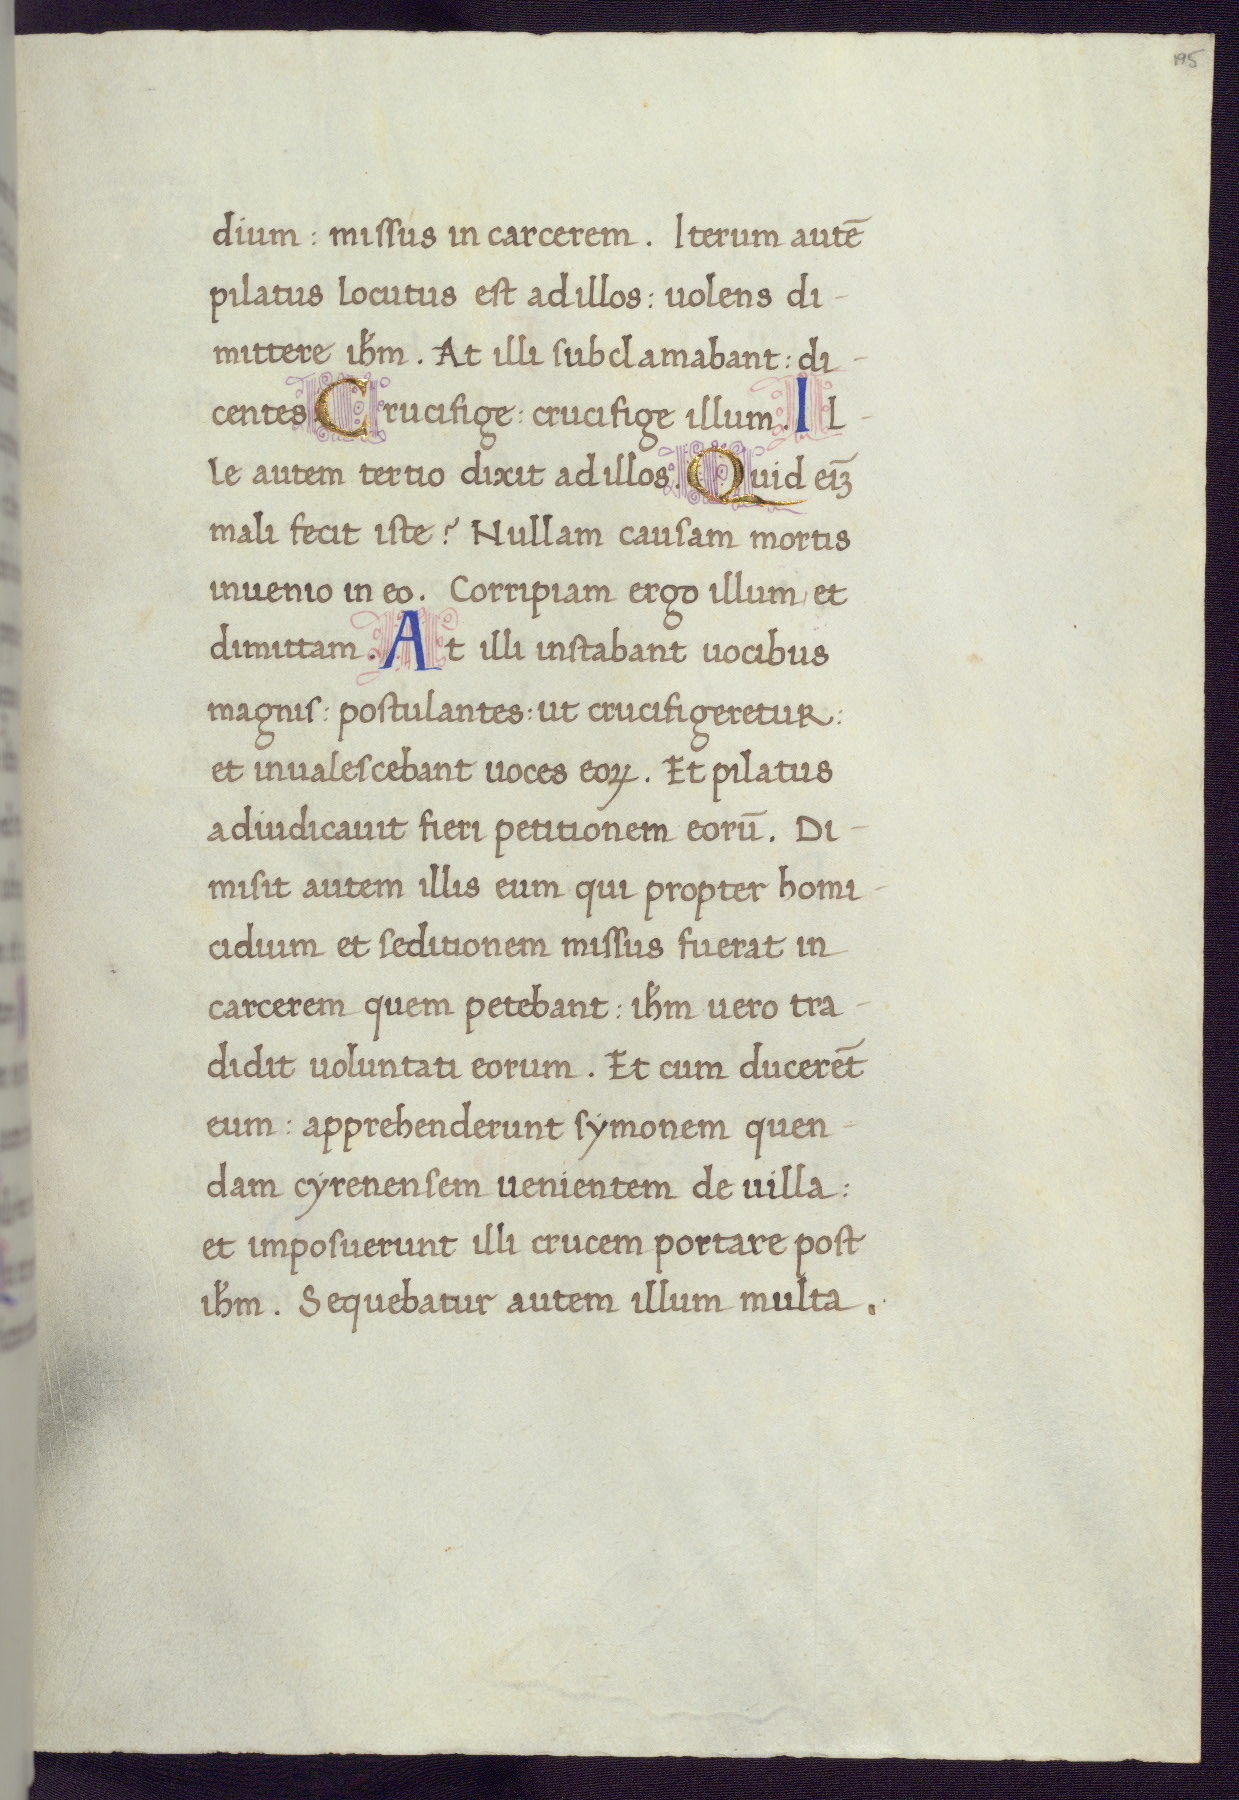 195
dium : missus in carcerem . Iterum autē
pilatus locutus est ad illos : uolens di-
mittere ihm̄ . At illi subclamabant : di-
centes Crucifige : crucifige illum . Il-
le autem tertio dixit ad illos . Quid eīꝫ
mali fecit iste ? Nullam causam mortis
inuenio in eo . Corripiam ergo illum et
dimittam . At illi instabant uocibus
magnis : postulantes : ut crucifigeretur :
et inualescebant uoces eoꝝ . Et pilatus
adiudicauit fieri petitionem eorū . Di-
misit autem illis eum qui propter homi-
cidium et seditionem missus fuerat in
carcerem quem petebant : ihm̄ uero tra-
didit uoluntati eorum . Et cum ducerēt
eum : apprehenderunt symonem quen-
dam cyrenensem uenientem de uilla :
et imposuerunt illi crucem portare post
ihm̄ . Sequebatur autem illum multa .